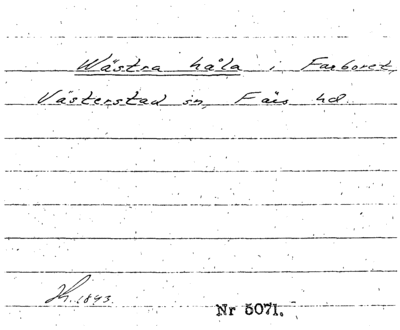 Wästra håla i Farboret,
Västerstad sn, Färs hd.
Hh. 1843.
Nr 5071.